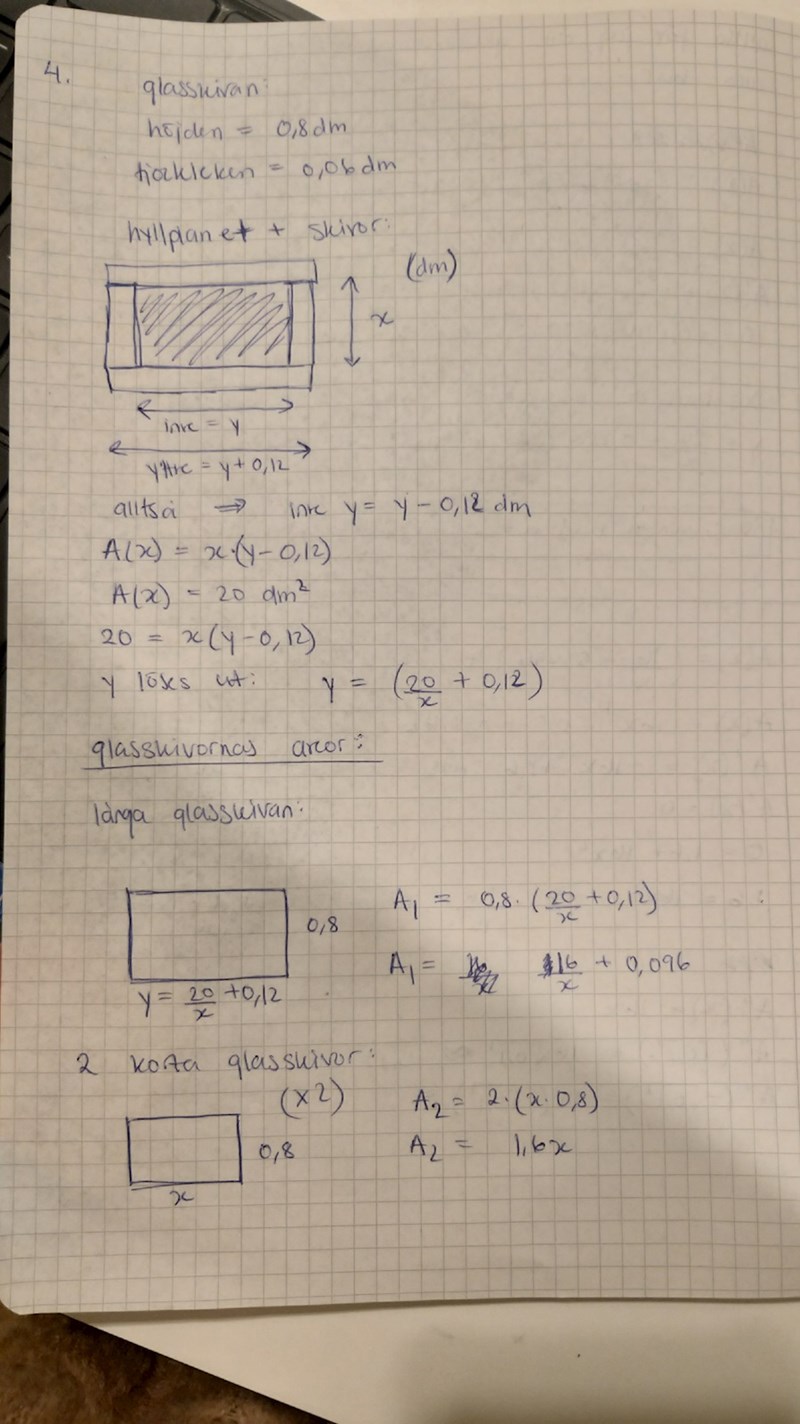 4.
glasskivan:
höjden = 0,8 dm
tjockleken = 0,06 dm
hyllplanet + skivor:
(dm)
x
inre = y
yttre = y + 0,12
alltså ⇒ inre y = y - 0,12 dm
A(x) = x·(y - 0,12)
A(x) = 20 dm²
20 = x(y - 0,12)
y löses ut: y = (20/x + 0,12)
glasskivornas areor:
långa glasskivan:
0,8
A₁ = 0,8 · (20/x + 0,12)
A₁ = 16/x + 0,096
y = 20/x + 0,12
2 korta glasskivor:
(x2)
A₂ = 2·(x·0,8)
0,8
A₂ = 1,6x
x